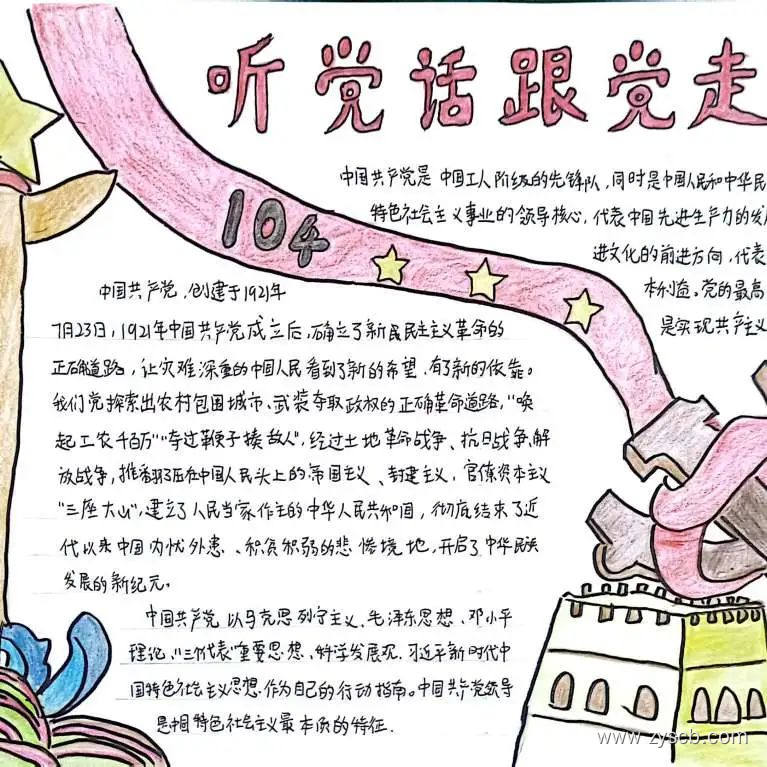 听党话跟党走
中国共产党是中国工人阶级的先锋队，同时是中国人民和中华民
特色社会主义事业的领导核心，代表中国先进生产力的发
进文化的前进方向，代表
本利益。党的最高
是实现共产主义
104
中国共产党，创建于1921年
7月23日，1921年中国共产党成立后，确立了新民民主主义革命的
正确道路，让灾难深重的中国人民看到了新的希望、有了新的依靠。
我们党探索出农村包围城市、武装夺取政权的正确革命道路，“唤
起工农千百万”“夺过鞭子揍敌人”，经过土地革命战争、抗日战争、解
放战争，推翻了压在中国人民头上的帝国主义、封建主义，官僚资本主义
“三座大山”，建立了人民当家作主的中华人民共和国，彻底结束了近
代以来中国内忧外患、积贫积弱的悲惨境地，开启了中华民族
发展的新纪元。
中国共产党以马克思列宁主义、毛泽东思想、邓小平
理论、“三个代表”重要思想、科学发展观、习近平新时代中
国特色社会主义思想作为自己的行动指南。中国共产党领导
是中国特色社会主义最本质的特征.
www.zyscb.com